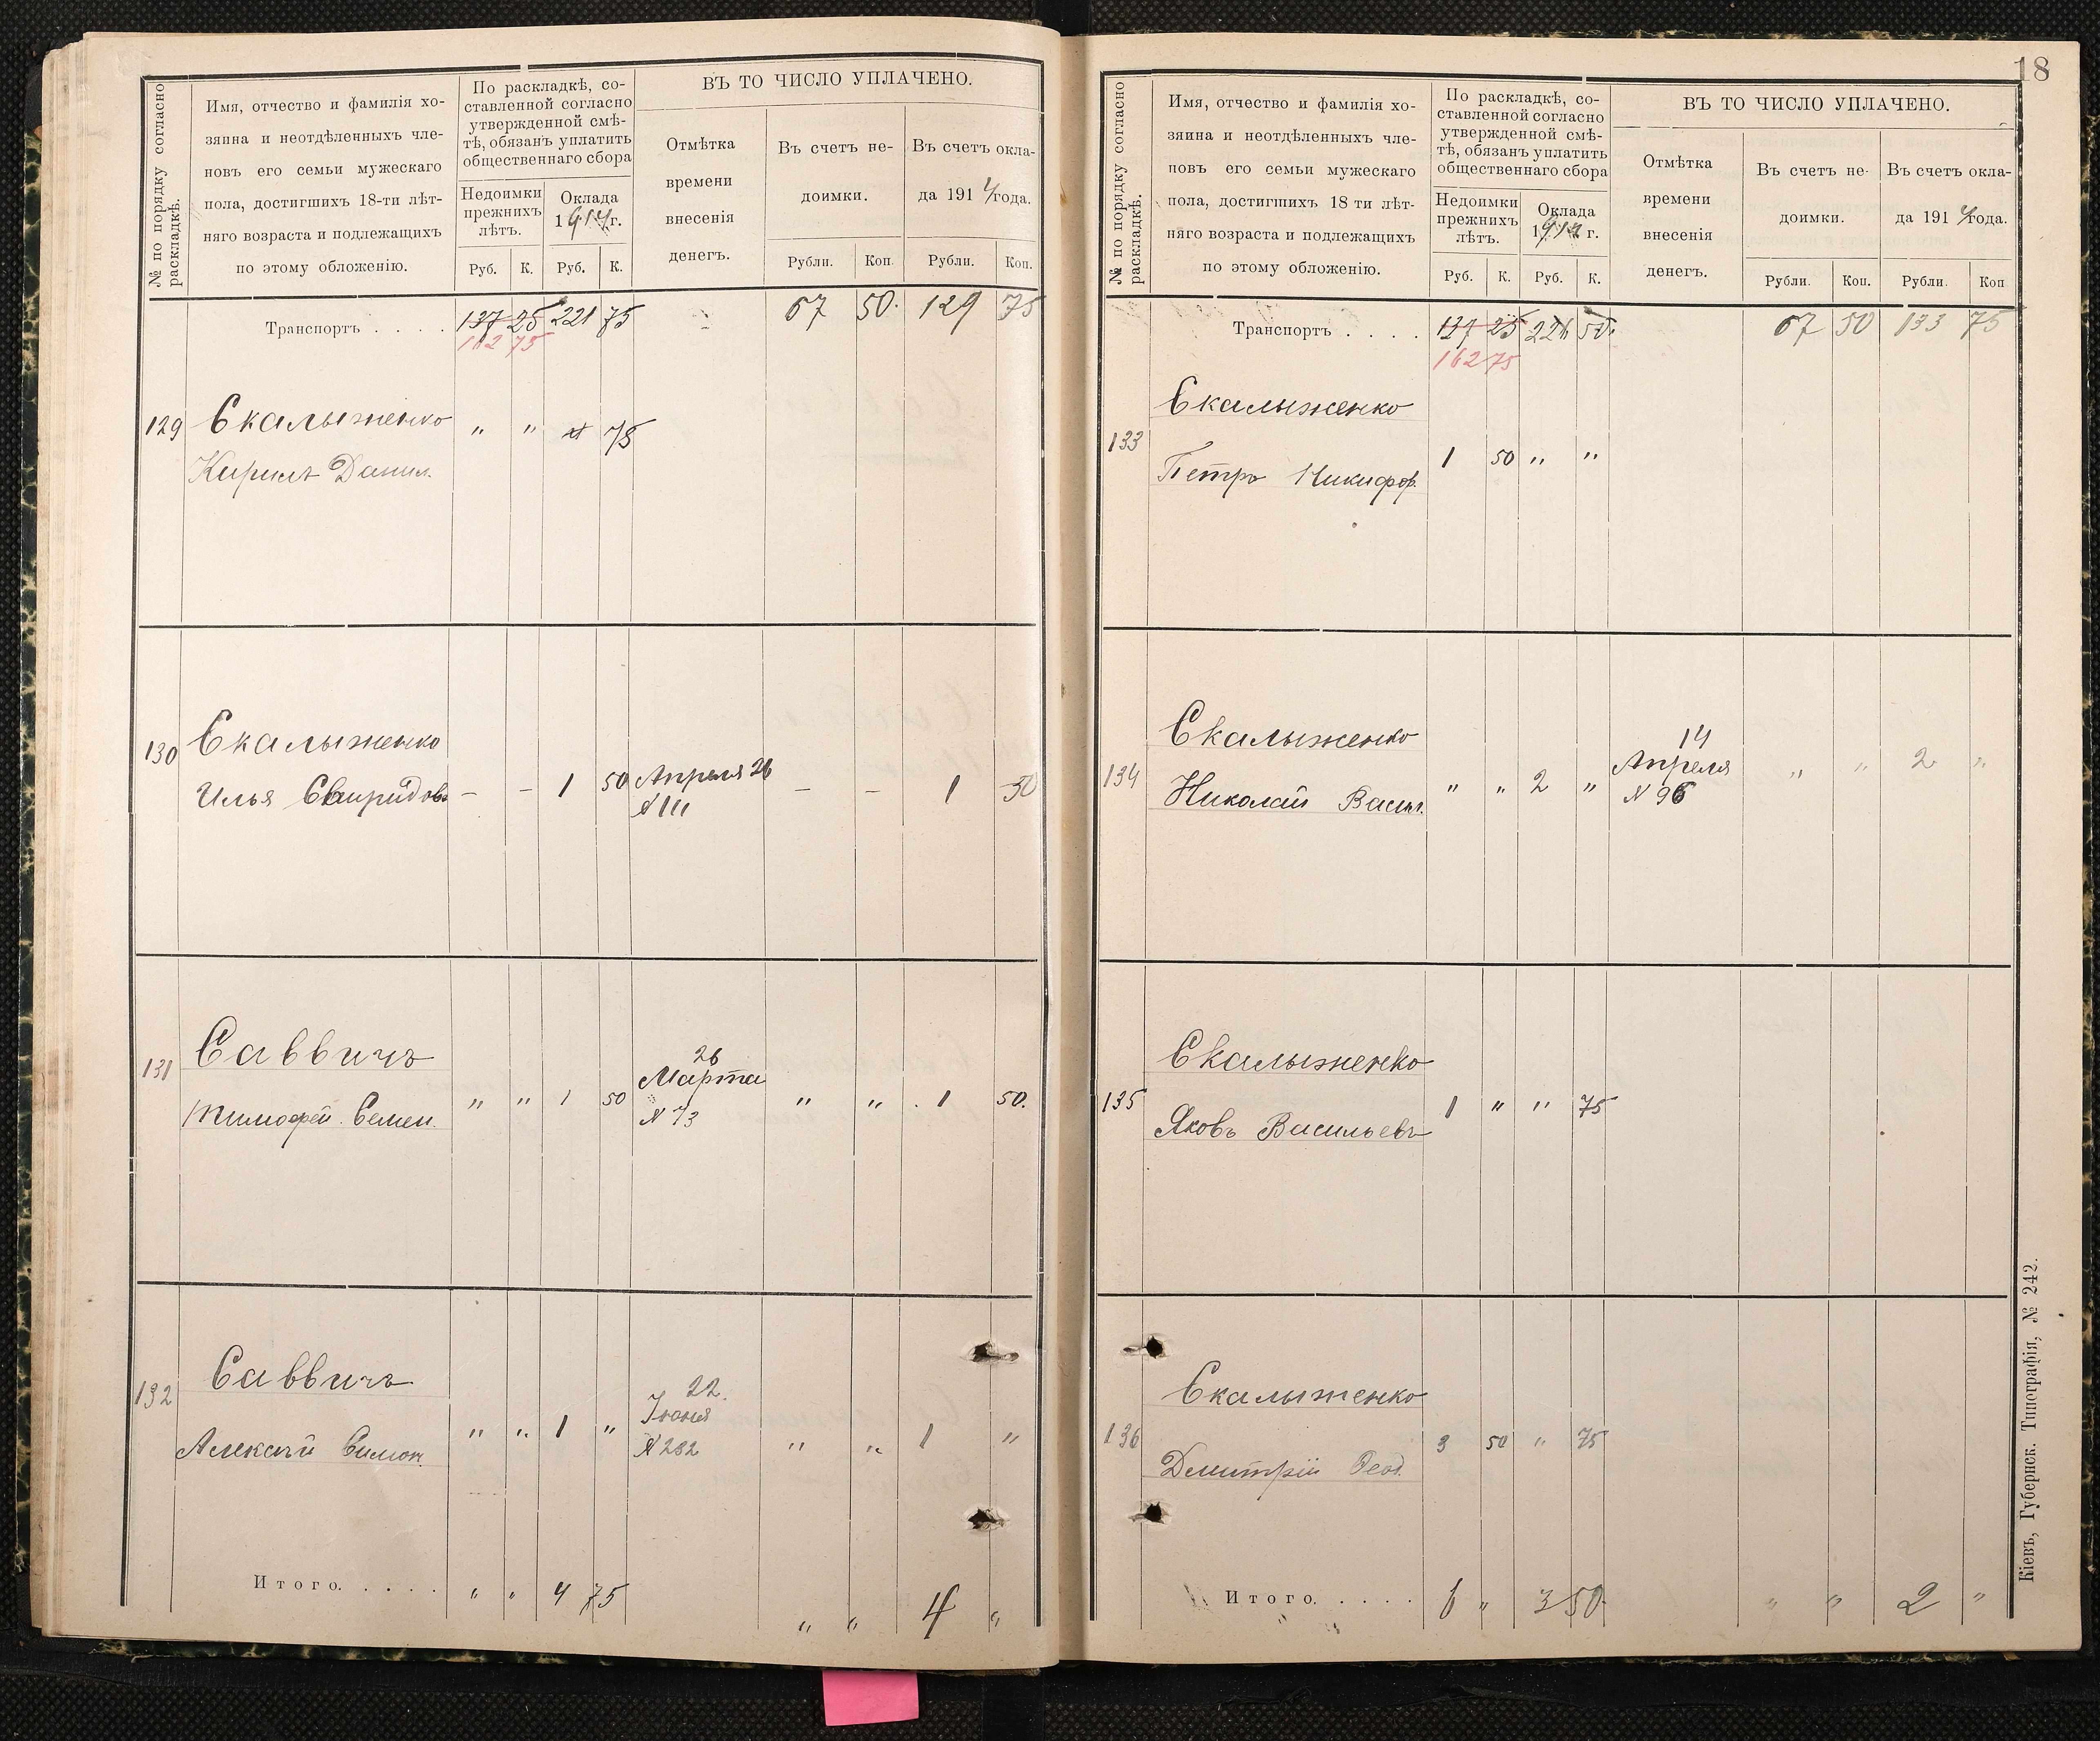 № по порядку согласно
раскладкѣ.
Имя, отчество и фамилія хо-
зяина и неотдѣленныхъ чле-
новъ его семьи мужескаго
пола, достигшихъ 18-ти лѣт-
няго возраста и подлежащихъ
по этому обложенію.
По раскладкѣ, со-
ставленной согласно
утвержденной смѣ-
тѣ, обязанъ уплатить
общественнаго сбора
Недоимки
прежнихъ
лѣтъ.
Оклада
1914 г.
Руб. К. Руб. К.
ВЪ ТО ЧИСЛО УПЛАЧЕНО.
Отмѣтка
времени
внесенія
денегъ.
Въ счетъ не-
доимки.
Въ счетъ окла-
да 1914 года.
Рубли. Коп. Рубли. Коп.
Транспортъ . . . . 137 25 221 75 67 50. 129 75
162 75
129 Скалыженко " " 75
Кирилъ Данил.
130 Скалыженко
Илья Свиридовъ - - 1 50 Апреля 26 - - 1 50
№ 111
131 Саввичъ
Тимофей Семен. " " 1 50 26 Марта " " 1 50.
№ 73
132 Саввичъ
Алексѣй Симон. " " 1 " 22 Іюня " " 1 "
№ 282
Итого. . . . . " " 4 75 " " 4 "
18
№ по порядку согласно
раскладкѣ.
Имя, отчество и фамилія хо-
зяина и неотдѣленныхъ чле-
новъ его семьи мужескаго
пола, достигшихъ 18 ти лѣт-
няго возраста и подлежащихъ
по этому обложенію.
По раскладкѣ, со-
ставленной согласно
утвержденной смѣ-
тѣ, обязанъ уплатить
общественнаго сбора
Недоимки
прежнихъ
лѣтъ.
Оклада
1914 г.
Руб. К. Руб. К.
ВЪ ТО ЧИСЛО УПЛАЧЕНО.
Отмѣтка
времени
внесенія
денегъ.
Въ счетъ не-
доимки.
Въ счетъ окла-
да 1914 года.
Рубли. Коп. Рубли. Коп
Транспортъ . . . . 137 25 226 50. 67 50 133 75
162 75
133 Скалыженко
Петръ Никифор. 1 50 " "
134 Скалыженко
Николай Васил. " " 2 " 14 Апреля " " 2 "
№ 96
135 Скалыженко
Яковъ Васильевъ 1 " " 75
136 Скалыженко
Дмитрій Феод. 3 50 " 75
Итого. . . . . 6 " 3 50. " " 2 "
Кіевъ, Губернск. Типографія, № 242.